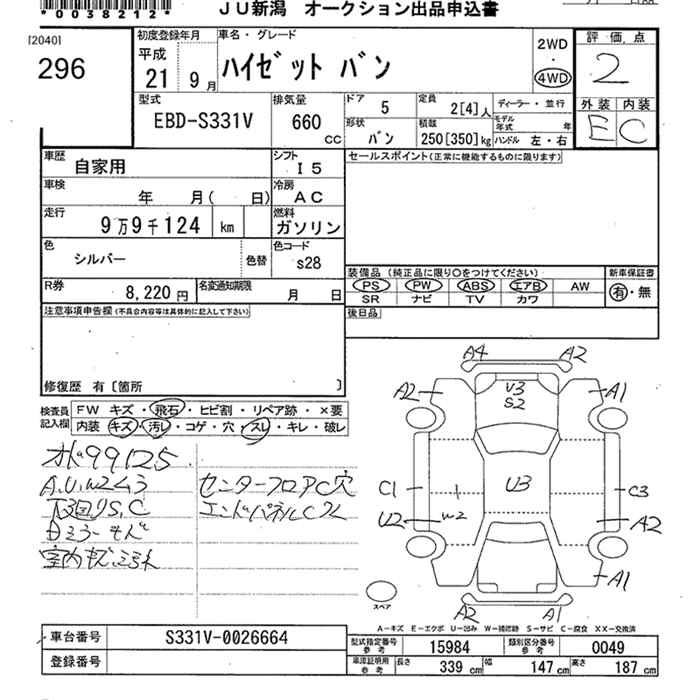 *0038212*
JU新潟 オークション出品申込書
[2040]
296
初度登録年月
平成
21 9 月
車名・グレード
ハイゼット バン
2WD
・
4WD
評価点
2
外装 内装
E C
型式
EBD-S331V
排気量
660
cc
ドア
5
定員
2[4]人
ディーラー・並行
形状
バン
積載
250[350]kg
モデル年式 年
ハンドル 左・右
車歴
自家用
シフト
I5
セールスポイント(正常に機能するものに限ります)
車検
年 月( 日)
冷房
AC
走行
9万9千124 km
燃料
ガソリン
色
シルバー
色替
色コード
s28
R券
8,220円
名変通知期限
月 日
装備品(純正品に限り○をつけてください)
PS PW ABS エアB AW
SR ナビ TV カワ
新車保証書
有・無
後日品
注意事項申告欄(不具合内容等は具体的に記入して下さい)
修復歴 有〔箇所 〕
検査員記入欄
FW キズ・飛石・ヒビ割・リペア跡・×要
内装 キズ・汚レ・コゲ・穴・スレ・キレ・破レ
99125
A.U.W2.3
下廻りS.C
センターフロアC穴
エンドパネルC
A4 A2
A2 A1
U3
S2
U3
C1 C3
U2 W2 A2
A1
A2 A1
スペア
A-キズ E-エクボ U-凹み W-補修跡 S-サビ C-腐食 XX-交換済
車台番号
S331V-0026664
登録番号
型式指定番号
参考
15984
類別区分番号
参考
0049
車庫証明用
参考
長さ
339 cm
幅
147 cm
高さ
187 cm